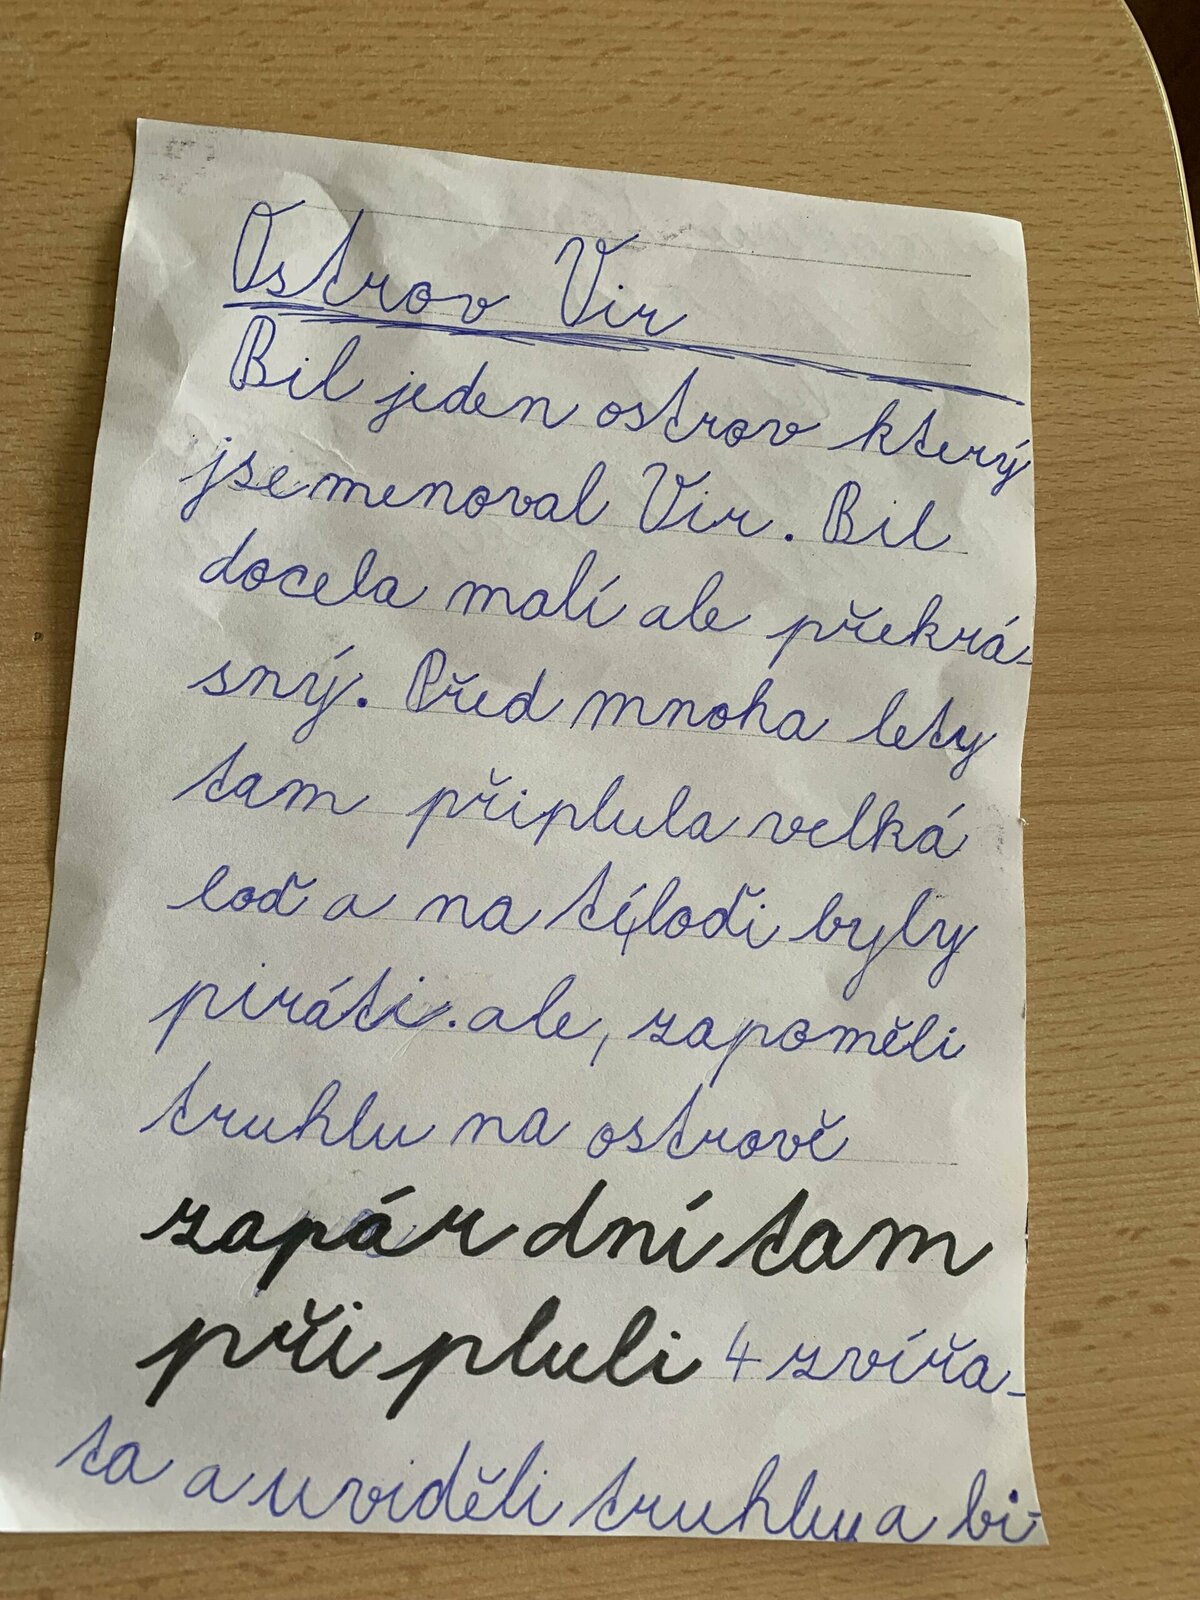 Ostrov Vir
Bil jeden ostrov který
jse menoval Vir. Bil
docela malí ale překrá-
sný. Před mnoha lety
tam připlula velká
loď a na té loďi byly
piráti. ale, zapoměli
truhlu na ostrově
zapár dní tam
při pluli 4 zvířa-
ta a uviděli truhlu a bi-